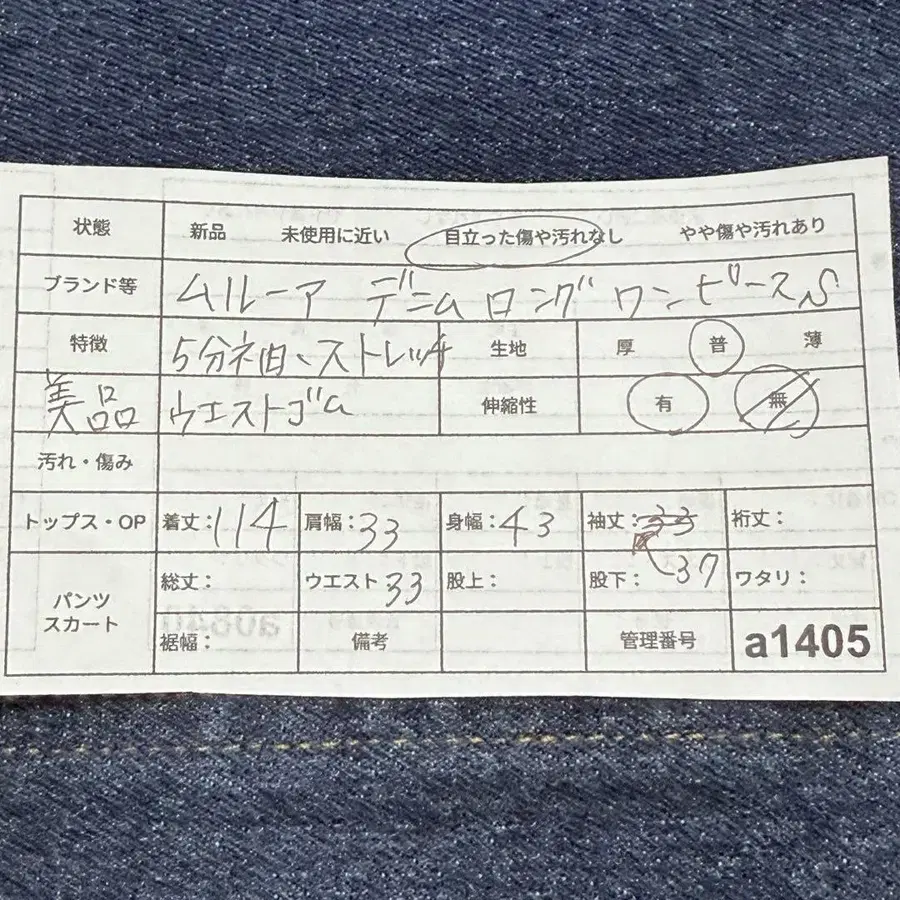 状態 新品 未使用に近い 目立った傷や汚れなし やや傷や汚れあり
ブランド等 ムルーア デニム ロング ワンピース S
特徴 5分袖、ストレッチ 生地 厚 普 薄
美品 ウエストゴム 伸縮性 有 無
汚れ・傷み
トップス・OP 着丈:114 肩幅:33 身幅:43 袖丈:33 裄丈:
パンツ スカート 総丈: ウエスト 33 股上: 股下: 37 ワタリ:
裾幅: 備考 管理番号 a1405